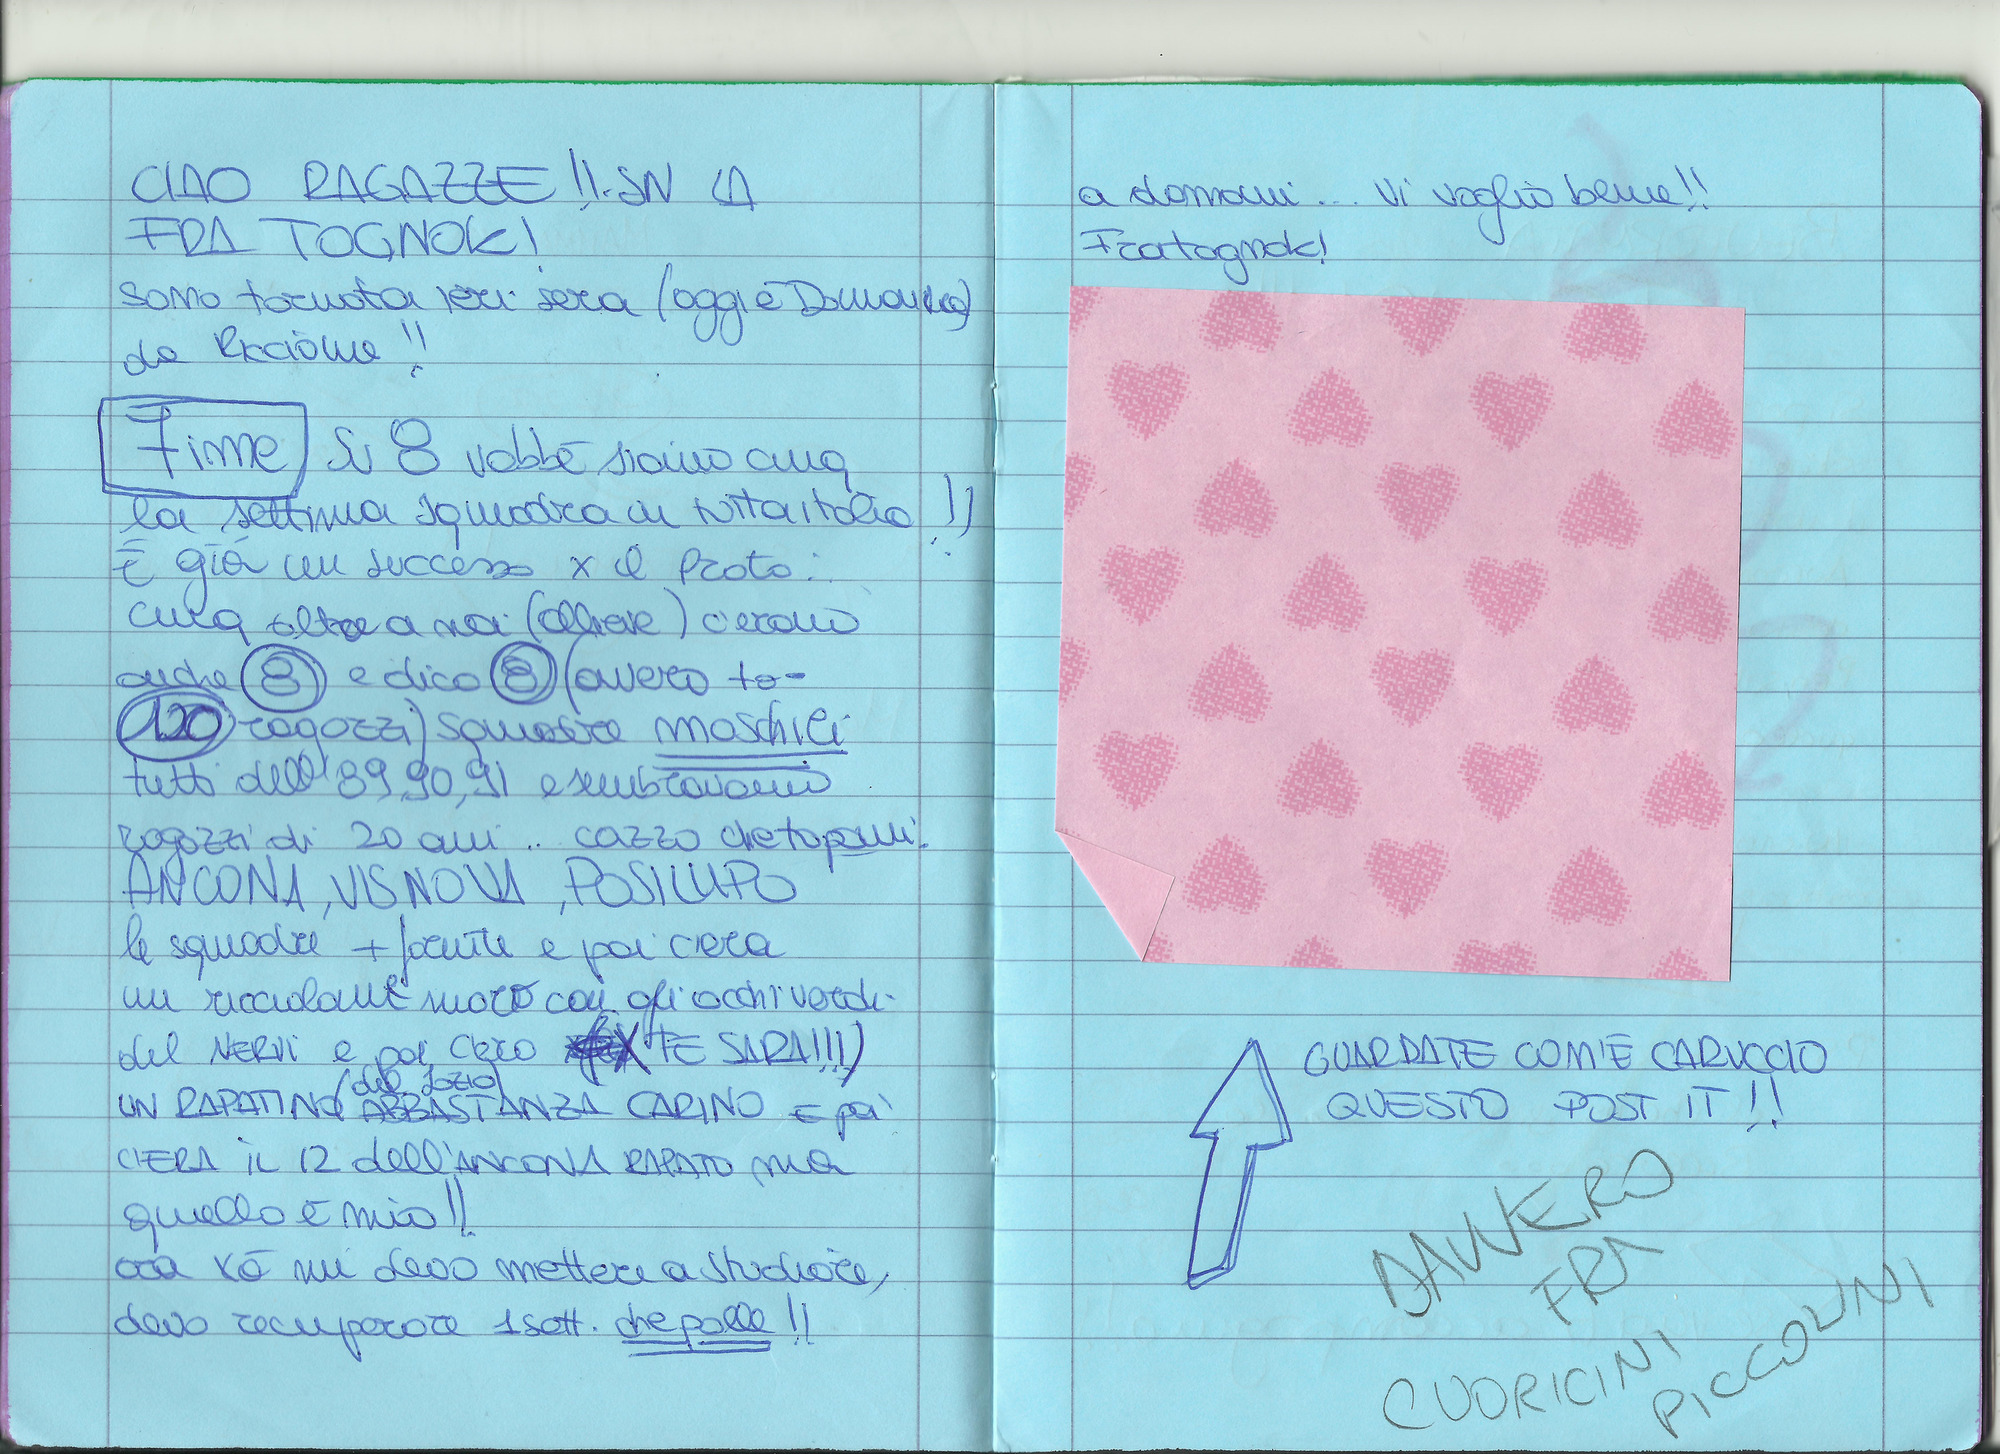 CIAO RAGAZZE!!. SN LA
FRA TOGNOK!
sono tornata ieri sera (oggi è Domenica)
da Riccione!!
Finite 8 vabbè siamo cmq
la settima squadra in tutta italia!!
È già un successo x il Proto..
cmq oltre a noi (allieve) c'erano
anche 8 e dico 8 (ovvero to-
120 ragazzi) squadre maschili
tutti dell' 89,90,91 e sembravano
ragazzi di 20 anni.. cazzo che topami!
ANCONA, VIS NOVA, POSILLIPO
le squadre + forti e poi c'era
un ricciolone moro con gli occhi verdi
del NERVI e poi C'ero (X TE SARA!!!)
UN RAPATINO (del Lazio) ABBASTANZA CARINO E poi
C'ERA iL 12 dell'ANCONA RAPATO ma
quello è mio!!
ora xò mi devo mettere a studiare,
devo recuperare 1 sett. che palle!!
a domani... vi voglio bene!!
Fratognok!
GUARDATE COM'È CARUCCIO
QUESTO POST IT!!
DAVVERO
FRA
CUORICINI
PICCOLINI